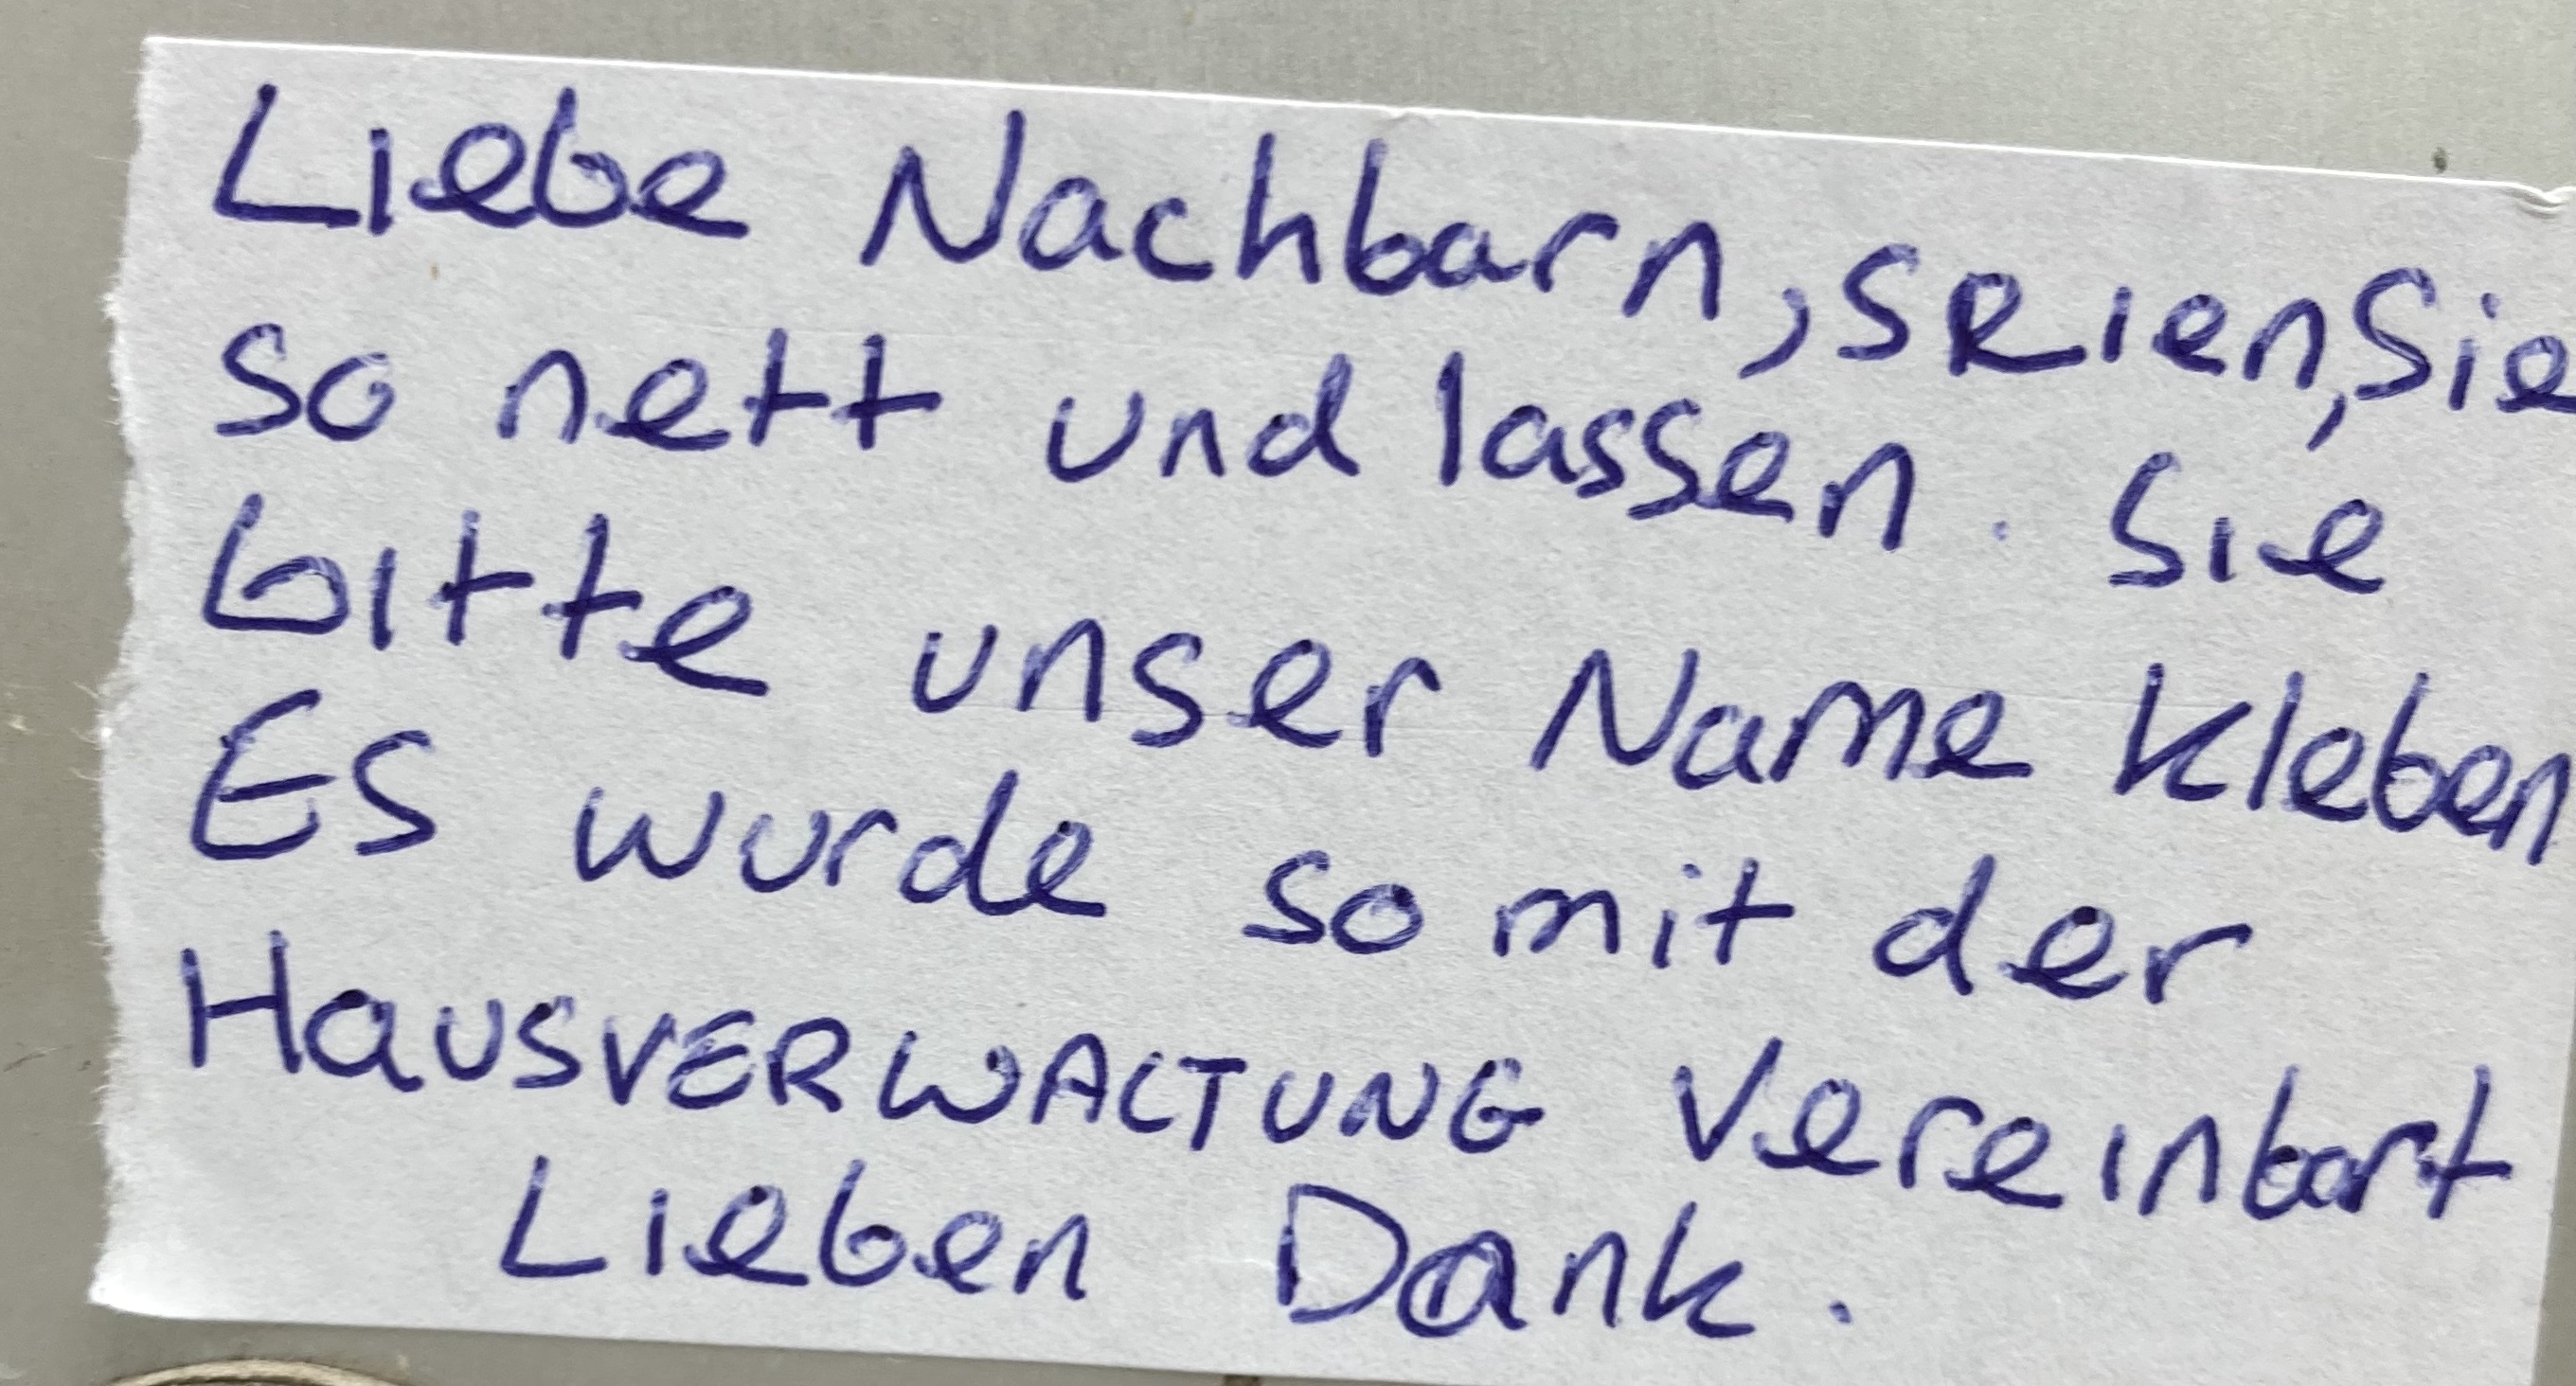 Liebe Nachbarn, seien, Sie
so nett und lassen. Sie
bitte unser Name kleben
ES wurde so mit der
HausVERWALTUNG Vereinbart
Lieben Dank.